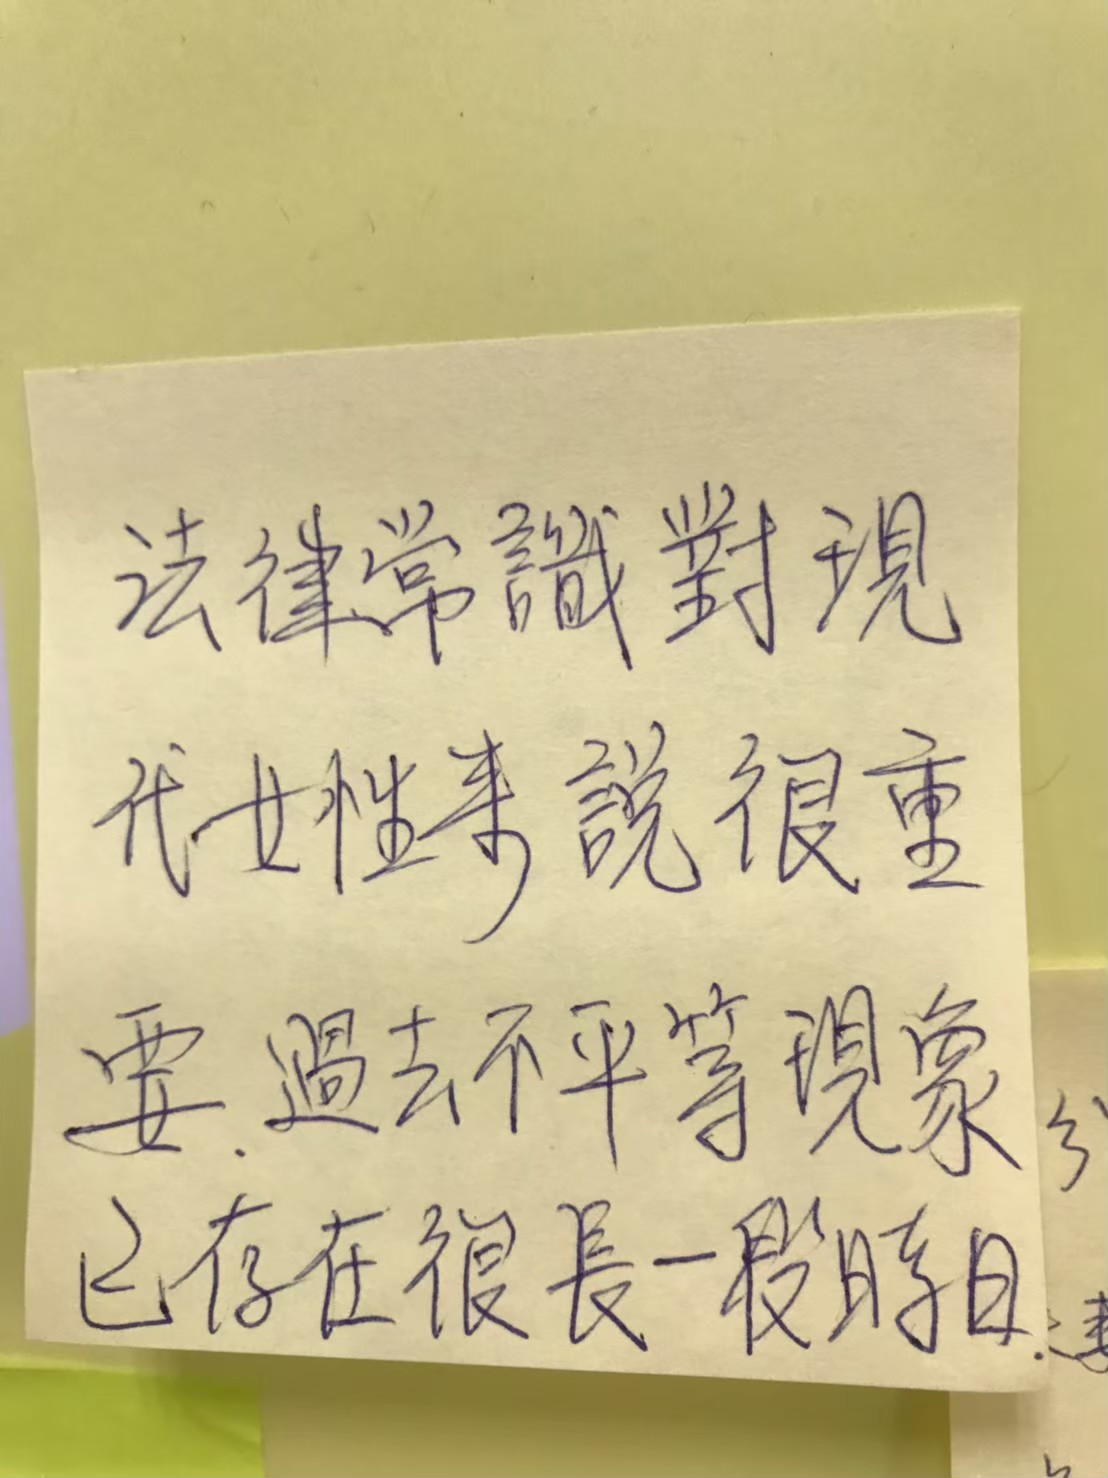 法律常識對現
代女性來說很重
要.過去不平等現象
已存在很長一段時日.